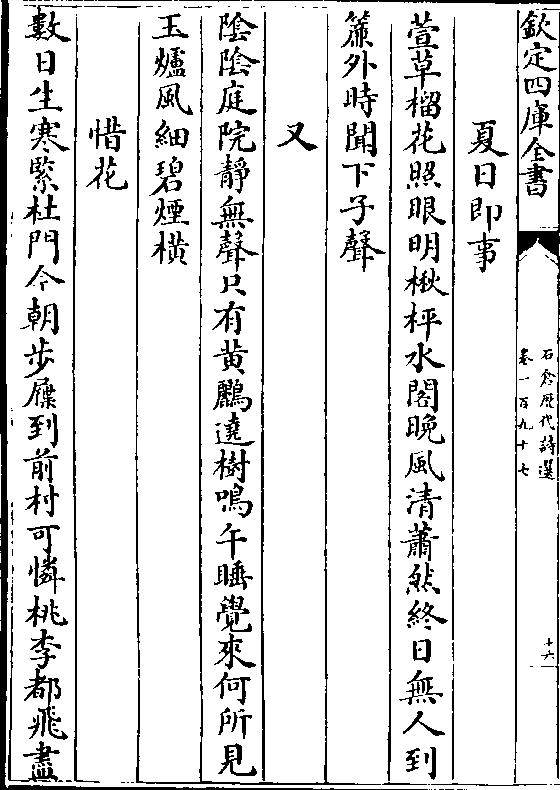 欽定四庫全書
石倉歷代詩選
卷一百九十七
十六
夏日即事
萱草榴花照眼明楸枰水閣晚風清蕭然終日無人到
簾外時聞下子聲
又
陰陰庭院靜無聲只有黄鸝遶樹鳴午睡覺來何所見
玉爐風細碧煙橫
惜花
數日生寒緊杜門今朝步屧到前村可憐桃李都飛盡